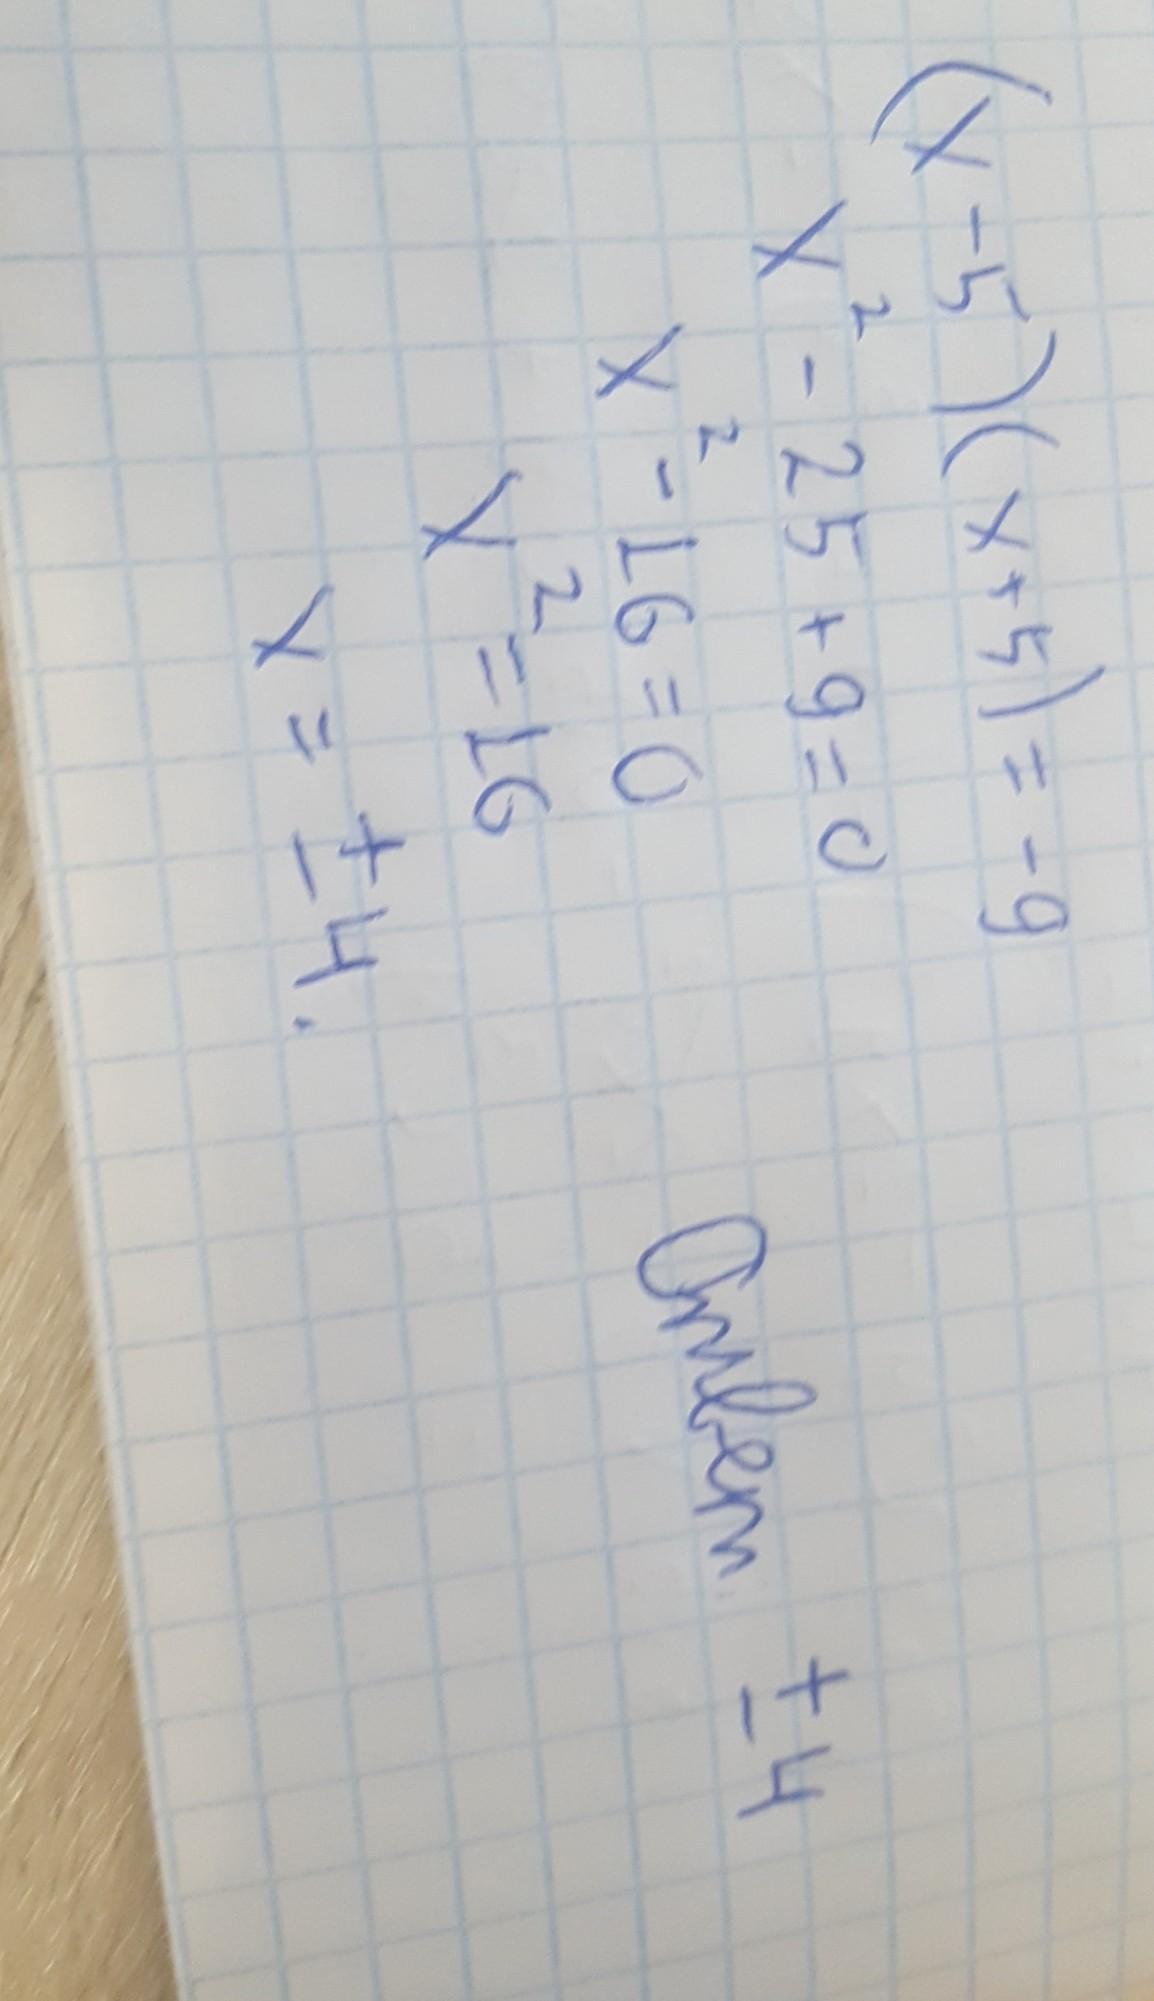 (x-5)(x+5)=-9
x²-25+9=0
x²-16=0
x²=16
x=±4.
Ответ ±4